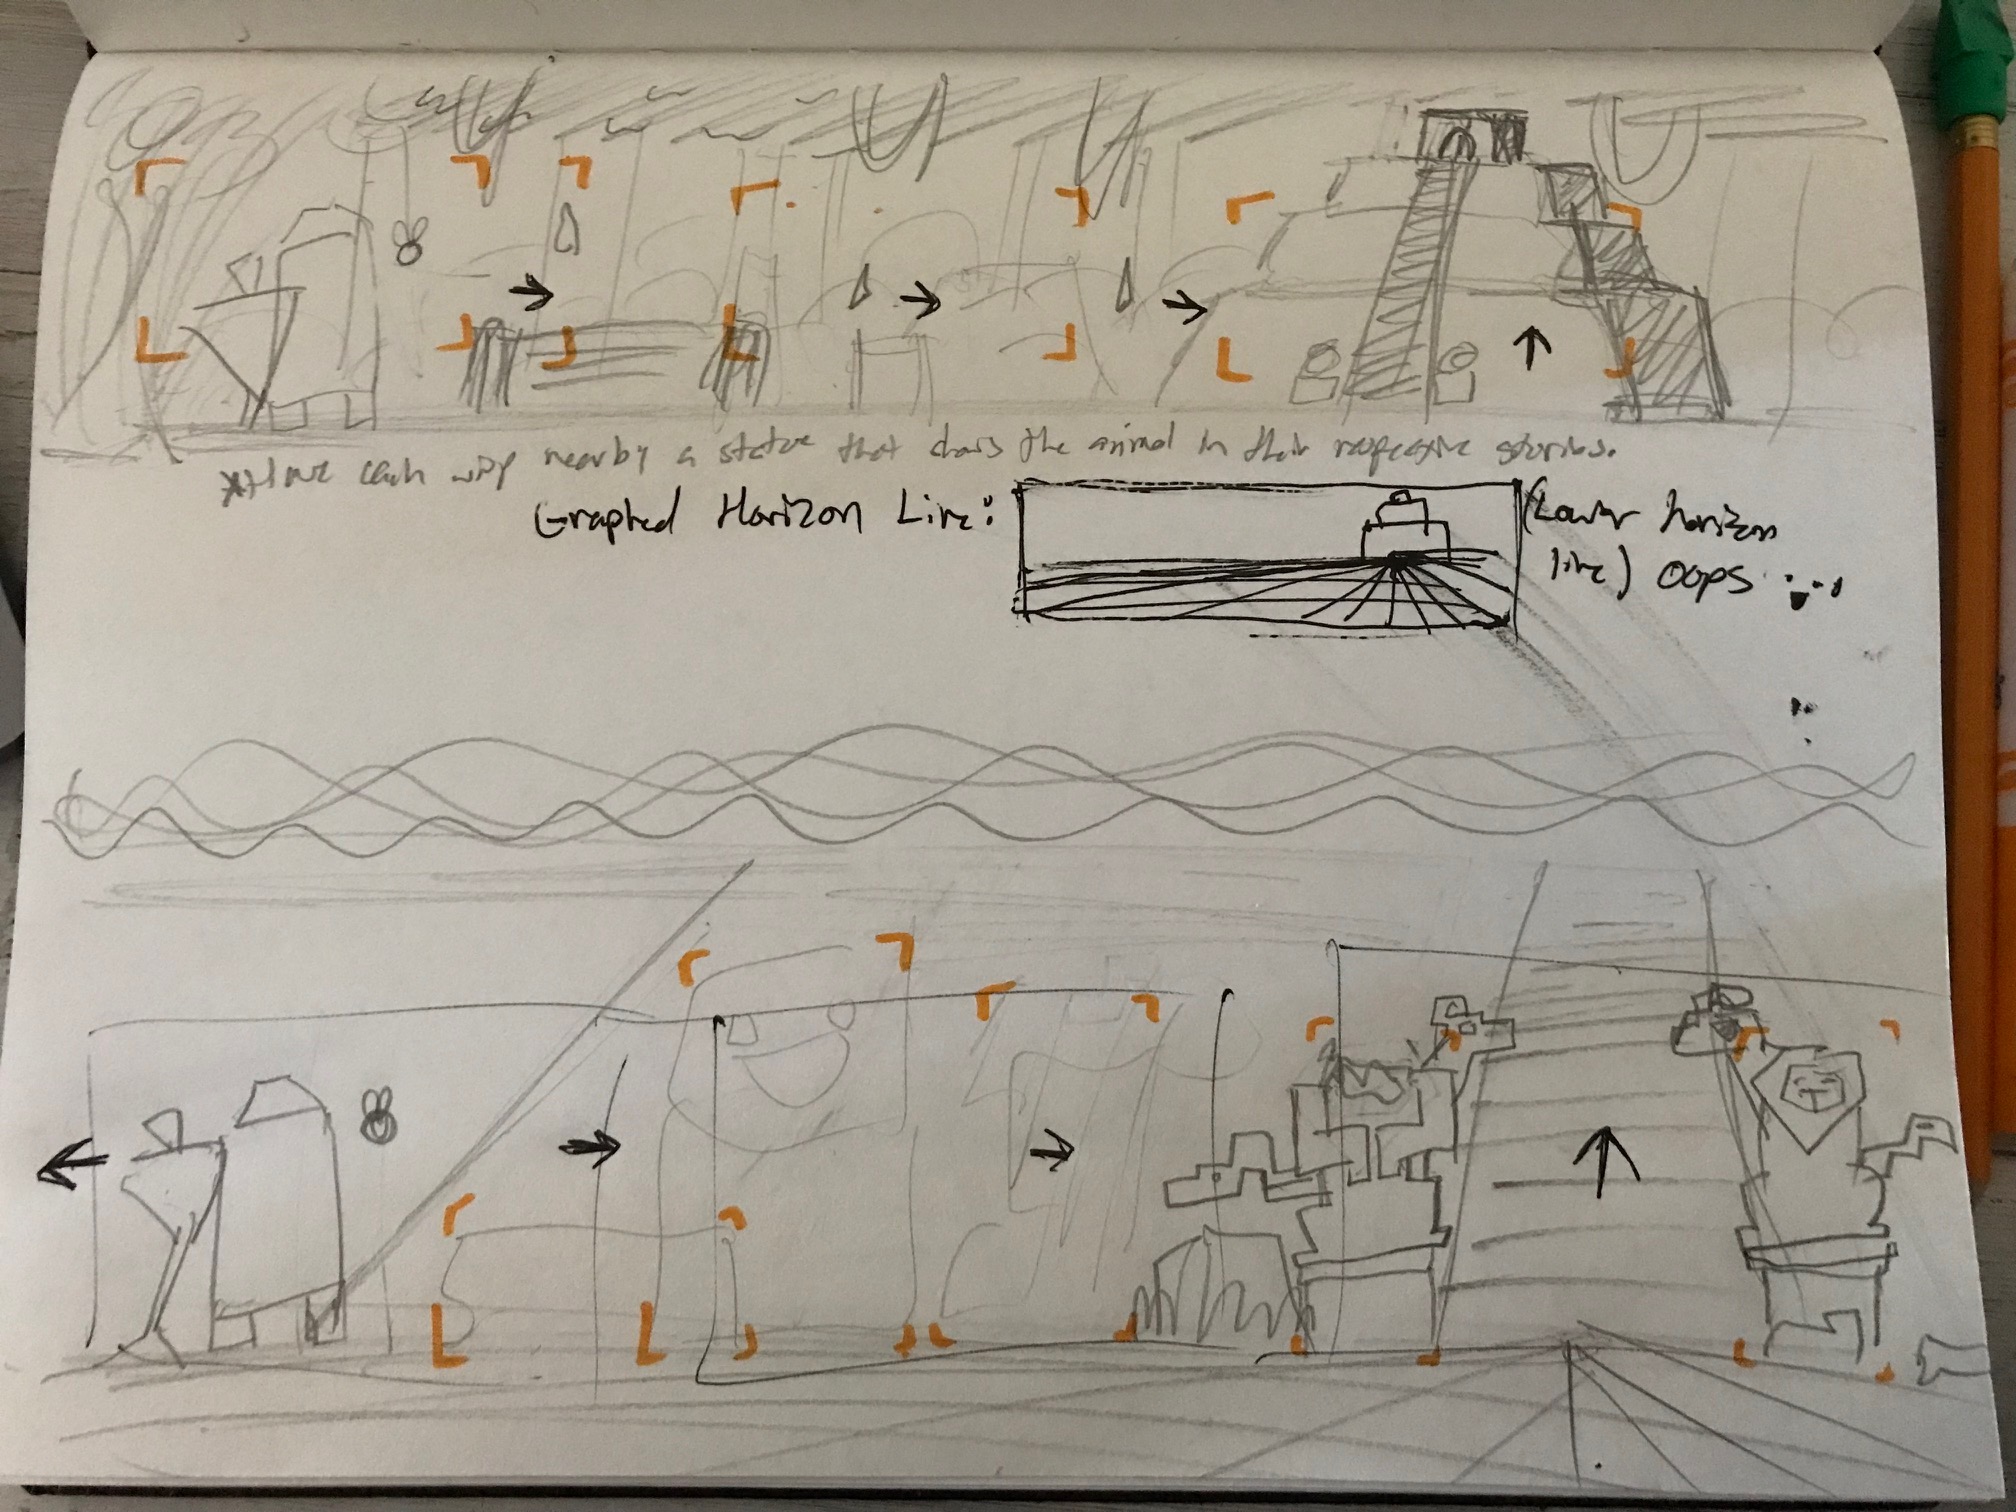 *Have each wisp nearby a statue that shows the animal in their respective stories.
Graphed Horizon Line:
(Lower horizon
line) Oops